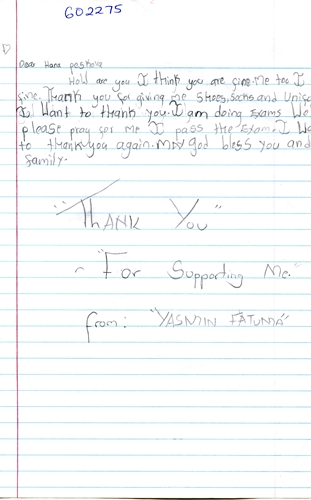 602275
Dear Hana poskova
How are you I think you are fine. me too I
fine. Thank you for giving me Shoes, Socks and Unifo
I Want to thank you. I am doing Exams We
please pray for me I pass the Exam. I Wa
to thank you again. May god bless you and
family.
"THANK YOU"
"For Supporting Me."
from: "YASMIN FATUMA"